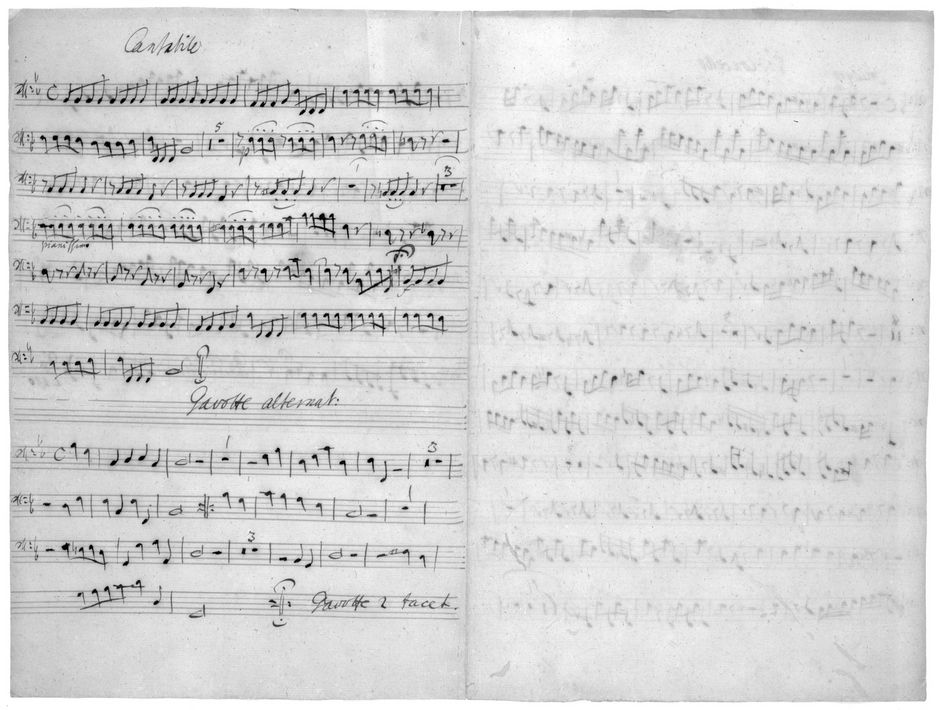 Cantabile
5
1
3
pianissimo
Gavotte alternat:
1
3
1
3
Gavotte 2 tacet.